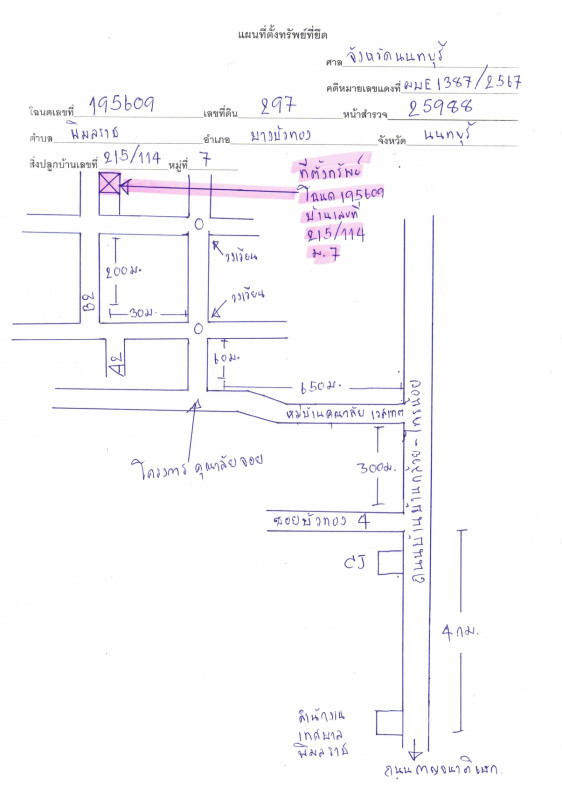 แผนที่ตั้งทรัพย์ที่ยึด
ศาล จังหวัดนนทบุรี
คดีหมายเลขแดงที่ ผบE1387/2567
โฉนดเลขที่ 195609 เลขที่ดิน 297 หน้าสำรวจ 25988
ตำบล พิมลราช อำเภอ บางบัวทอง จังหวัด นนทบุรี
สิ่งปลูกบ้านเลขที่ 215/114 หมู่ที่ 7
ที่ตั้งทรัพย์
โฉนด 195609
บ้านเลขที่
215/114
ม.7
วงเวียน
200 ม.
วงเวียน
B2
30 ม.
60 ม.
A2
650 ม.
หมู่บ้านคุณาลัย เวสเทศ
โครงการ คุณาลัย จอย
300 ม.
ถนนบ้านกล้วย - ไทรน้อย
ซอยบัวทอง 4
CJ
4 กม.
สำนักงาน
เทศบาล
พิมลราช
ถนนกาญจนาภิเษก.